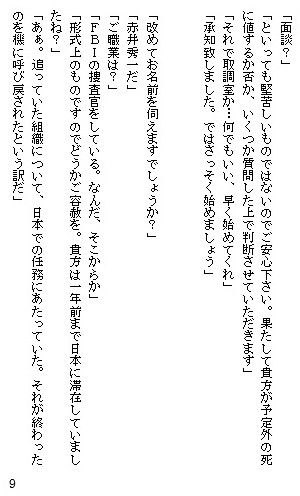 「面談？」
「といっても堅苦しいものではないのでご安心下さい。果たして貴方が予定外の死
に値するか否か、いくつか質問した上で判断させていただきます」
「それで取調室か…何でもいい、早く始めてくれ」
「承知致しました。ではさっそく始めましょう」
「改めてお名前を伺えますでしょうか？」
「赤井秀一だ」
「ご職業は？」
「ＦＢＩの捜査官をしている。なんだ、そこからか」
「形式上のものですのでどうかご容赦を。貴方は一年前まで日本に滞在していまし
たね？」
「あぁ。追っていた組織について、日本での任務にあたっていた。それが終わった
のを機に呼び戻されたという訳だ」
9